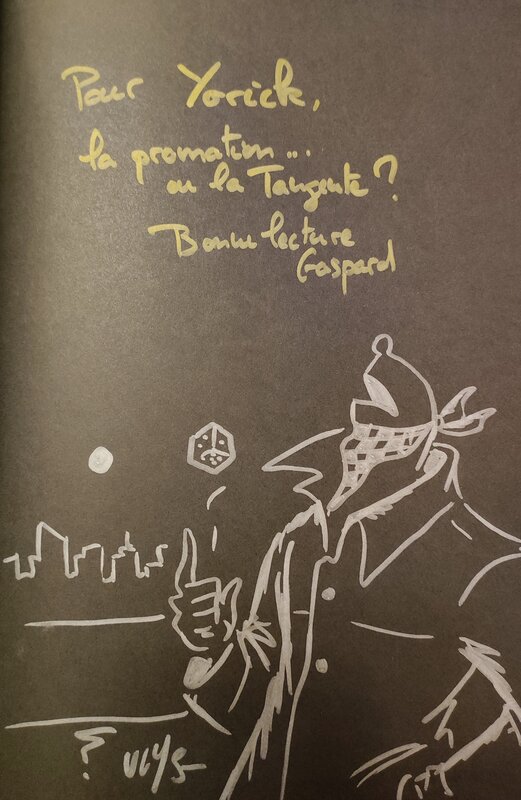 Pour Yorick,
la promation...
ou la Tangente ?
Bonne lecture
Gaspard